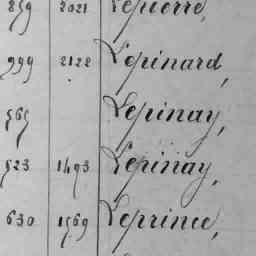 859 2021 Lepierre,
999 2122 Lepinard,
565 Lepinay,
523 1493 Lepinay,
630 1569 Leprince,